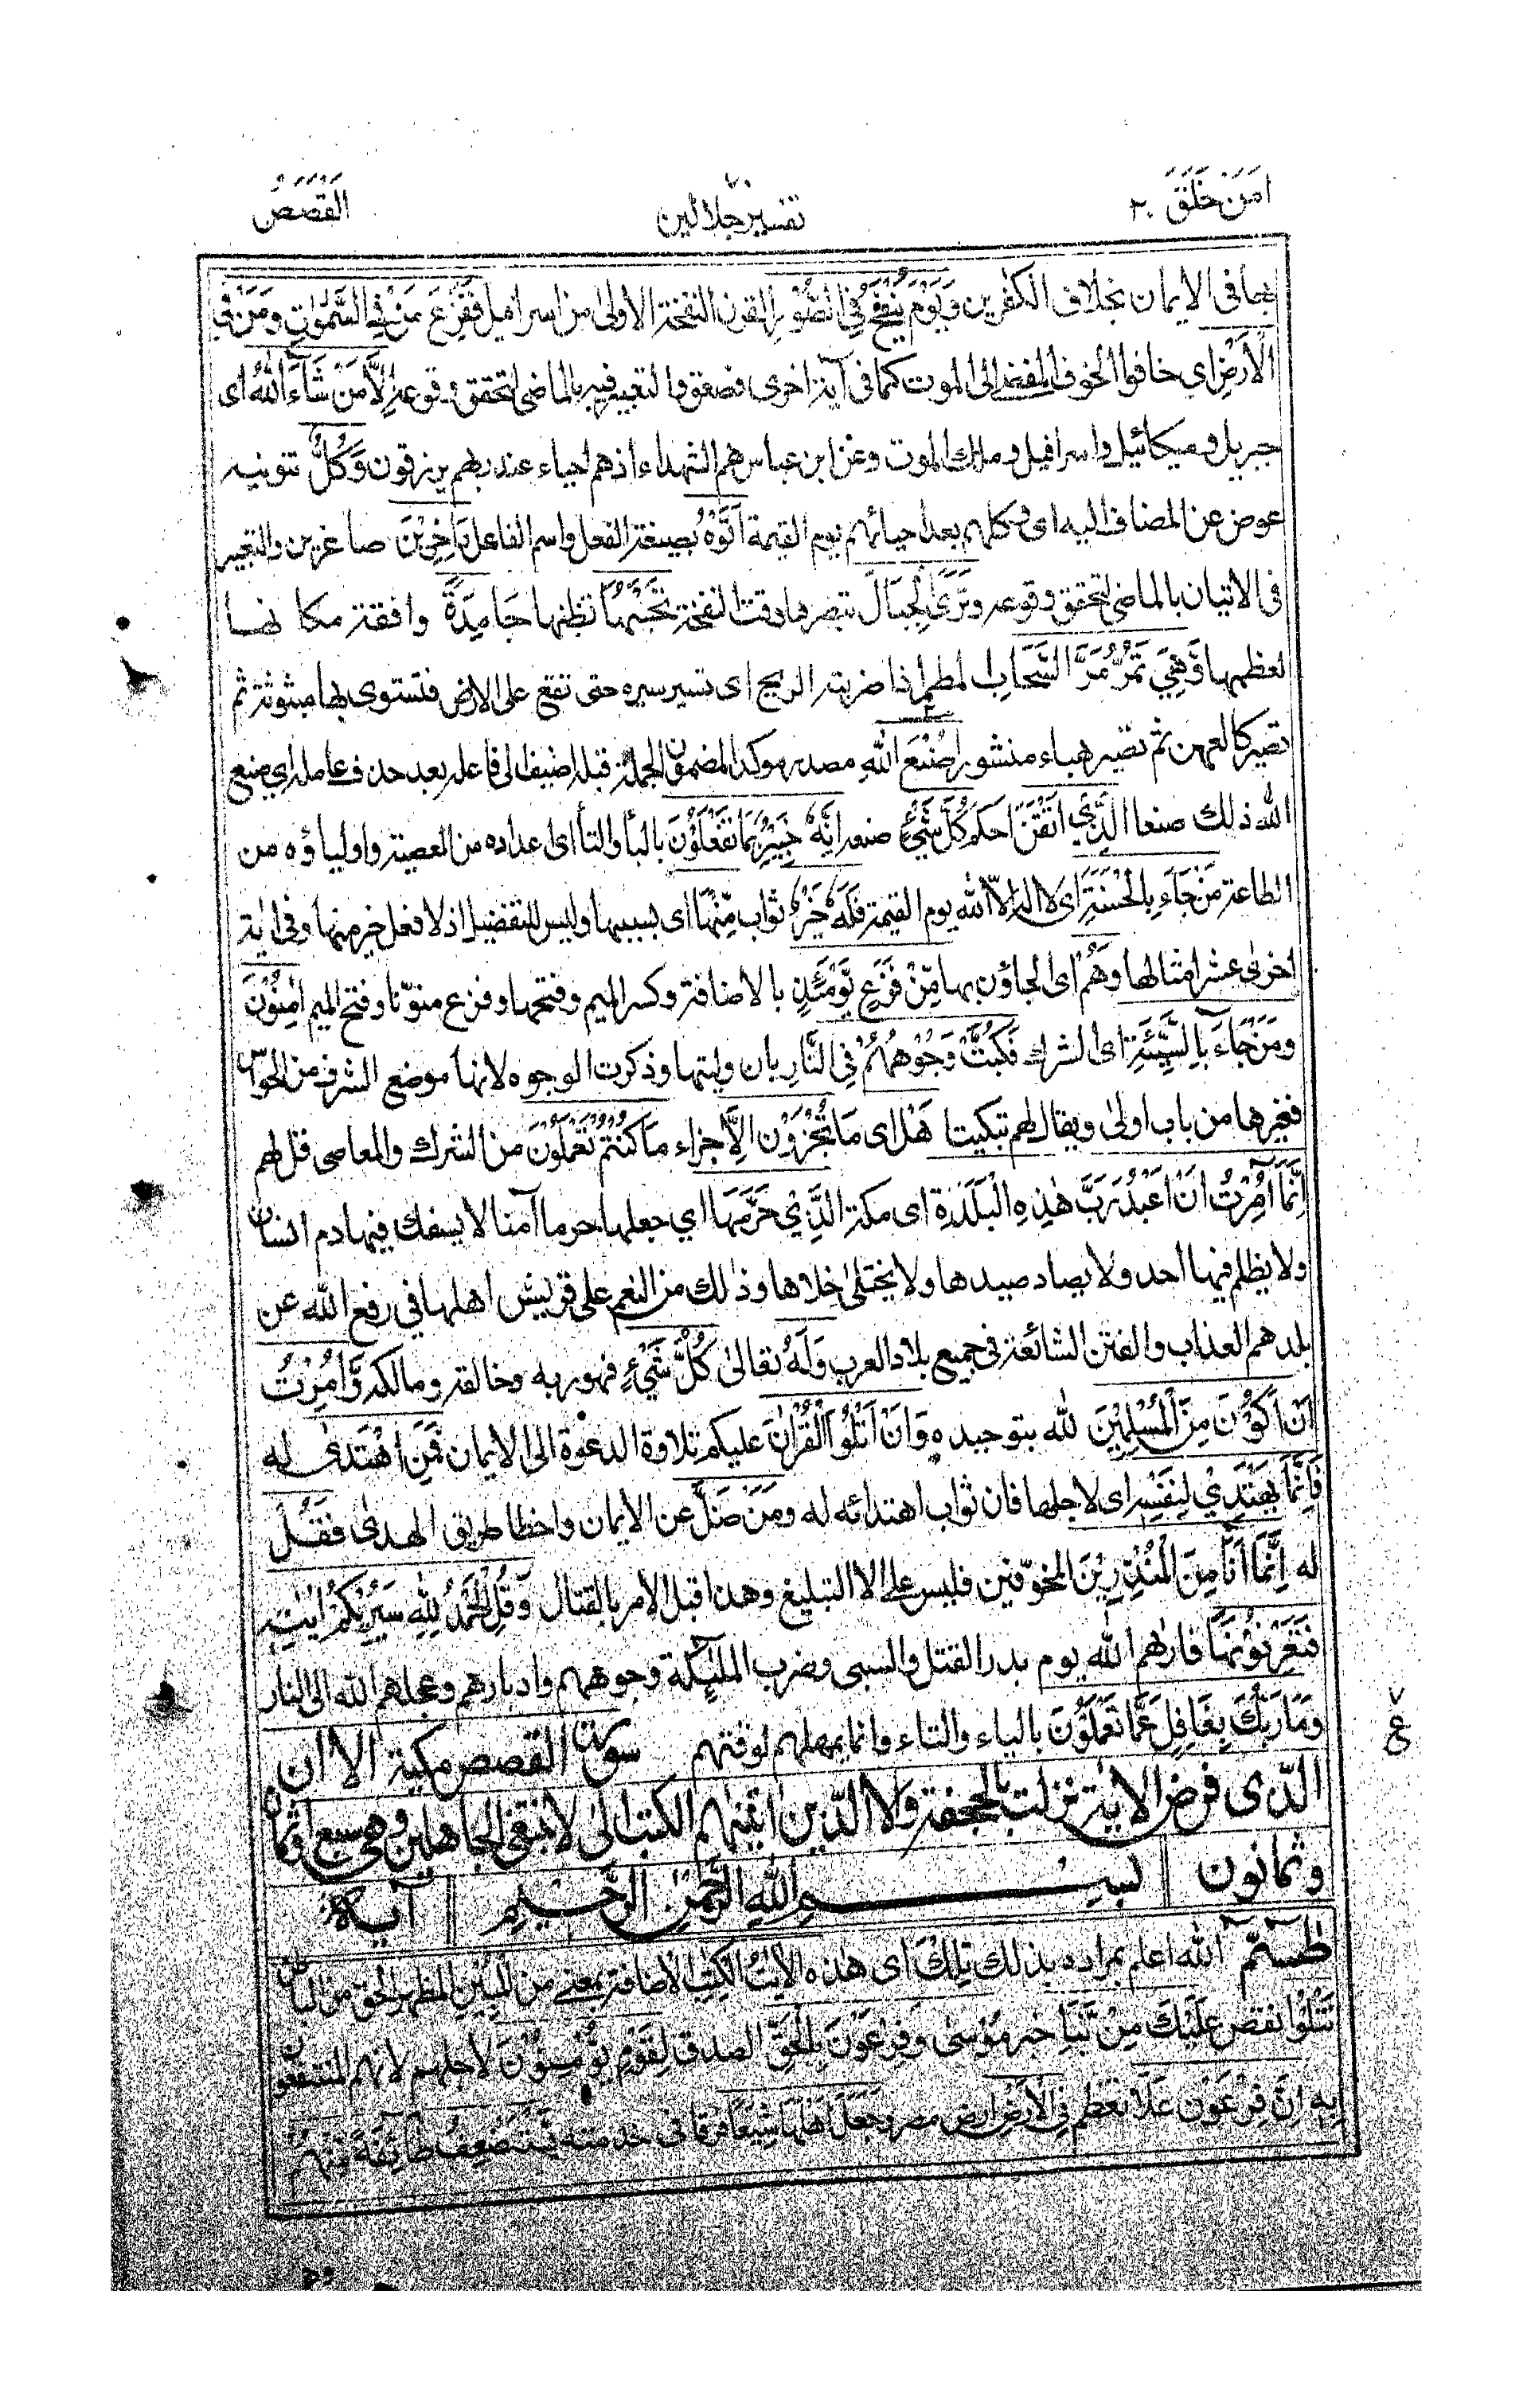 امن خلق ٢٠
تفسير جلالين
القصص
بها فى الايمان بخلاف الكفرين وَيَوْمَ يُنْفَخُ فِي الصُّوْرِ القرن النفخة الاولى من اسرافيل فَفَزِعَ مَنْ فِي السَّمٰوٰتِ وَمَنْ فِي
الْاَرْضِ اى خافوا الخوف المفضى الى الموت كما فى آية اخرى فصعق والتعبير فيه بالماضى لتحقق وقوعه اِلَّا مَنْ شَآءَ اللّٰهُ اى
جبريل وميكائيل واسرافيل وملك الموت وعن ابن عباس هم الشهداء اذ هم احياء عند ربهم يرزقون وَكُلٌّ تنوينه
عوض عن المضاف اليه اى وكلهم بعد احيائهم يوم القيمة اَتَوْهُ بصيغة الفعل واسم الفاعل دَاخِرِيْنَ صاغرين والتعبير
فى الاتيان بالماضى لتحقق وقوعه وَتَرَى الْجِبَالَ تبصرها وقت النفخة تَحْسَبُهَا تظنها جَامِدَةً واقفة مكانها
لعظمها وَّهِيَ تَمُرُّ مَرَّ السَّحَابِ المطر اذا ضربته الريح اى تسير سيره حتى تقع على الارض فتستوى بها مبثوثة ثم
تصير كالعهن ثم تصير هباء منثورا صُنْعَ اللّٰهِ مصدر مؤكد لمضمون الجملة قبله اضيف الى فاعله بعد حذف عامله اي صنع
الله ذلك صنعا الَّذِيْ اَتْقَنَ احكم كُلَّ شَيْءٍ صنعه اِنَّهٗ خَبِيْرٌ بِمَا تَفْعَلُوْنَ بالياء والتاء اى اعداده من المعصية واولياؤه من
الطاعة مَنْ جَآءَ بِالْحَسَنَةِ اى لا اله الا الله يوم القيمة فَلَهٗ خَيْرٌ ثواب مِّنْهَا اى بسببها وليس للتفضيل اذ لا فعل خير منها وفى اية
اخرى عشر امثالها وَهُمْ اى الجاؤن بها مِّنْ فَزَعٍ يَّوْمَئِذٍ بالاضافة وكسر الميم وفتحها وفزع منونا وفتح الميم اٰمِنُوْنَ
وَمَنْ جَآءَ بِالسَّيِّئَةِ اى الشرك فَكُبَّتْ وُجُوْهُهُمْ فِي النَّارِ بان وليتها وذكرت الوجوه لانها موضع الشرف من الحواس
فغيرها من باب اولى ويقال لهم تبكيتا هَلْ اى مَا تُجْزَوْنَ اِلَّا جزاء مَا كُنْتُمْ تَعْمَلُوْنَ من الشرك والمعاصى قل لهم
اِنَّمَآ اُمِرْتُ اَنْ اَعْبُدَ رَبَّ هٰذِهِ الْبَلْدَةِ اى مكة الَّذِيْ حَرَّمَهَا اي جعلها حرما آمنا لا يسفك فيها دم انسان
ولا يظلم فيها احد ولا يصاد صيدها ولا يختلى خلاها وذلك من النعم على قريش اهلها في رفع الله عن
بلدهم العذاب والفتن الشائعة فى جميع بلاد العرب وَلَهٗ تعالى كُلُّ شَيْءٍ فهو ربه وخالقه ومالكه وَّاُمِرْتُ
اَنْ اَكُوْنَ مِنَ الْمُسْلِمِيْنَ لله بتوحيده وَاَنْ اَتْلُوَا الْقُرْاٰنَ عليكم تلاوة الدعوة الى الايمان فَمَنِ اهْتَدٰى له
فَاِنَّمَا يَهْتَدِيْ لِنَفْسِهٖ اى لاجلها فان ثواب اهتدائه له وَمَنْ ضَلَّ عن الايمان واخطا طريق الهدى فَقُلْ
له اِنَّمَآ اَنَا مِنَ الْمُنْذِرِيْنَ المخوفين فليس على الا التبليغ وهذا قبل الامر بالقتال وَقُلِ الْحَمْدُ لِلّٰهِ سَيُرِيْكُمْ اٰيٰتِهٖ
فَتَعْرِفُوْنَهَا فاراهم الله يوم بدر القتل والسبى وضرب الملٰئكة وجوههم وادبارهم وعجلهم الله الى النار
وَمَا رَبُّكَ بِغَافِلٍ عَمَّا تَعْمَلُوْنَ بالياء والتاء وانما يمهلهم لوقتهم سورة القصص مكية الا ان
الذى فرض الاية نزلت بالجحفة والا الذين اتينهم الكتب الى لا نبتغى الجاهلين وهى سبع او ثمان
وثمانون بسم الله الرحمن الرحيم آية
طٰسٓمّٓ الله اعلم بمراده بذلك تِلْكَ اى هذه الايت اٰيٰتُ الْكِتٰبِ الاضافة بمعنى من الْمُبِيْنِ المظهر الحق من الباطل
نَتْلُوْا نقص عَلَيْكَ مِنْ نَّبَاِ خبر مُوْسٰى وَفِرْعَوْنَ بِالْحَقِّ الصدق لِقَوْمٍ يُّؤْمِنُوْنَ لاجلهم لانهم المنتفعون
به اِنَّ فِرْعَوْنَ عَلَا تعظم فِي الْاَرْضِ ارض مصر وَجَعَلَ اَهْلَهَا شِيَعًا فرقا فى خدمته يَّسْتَضْعِفُ طَآئِفَةً مِّنْهُمْ